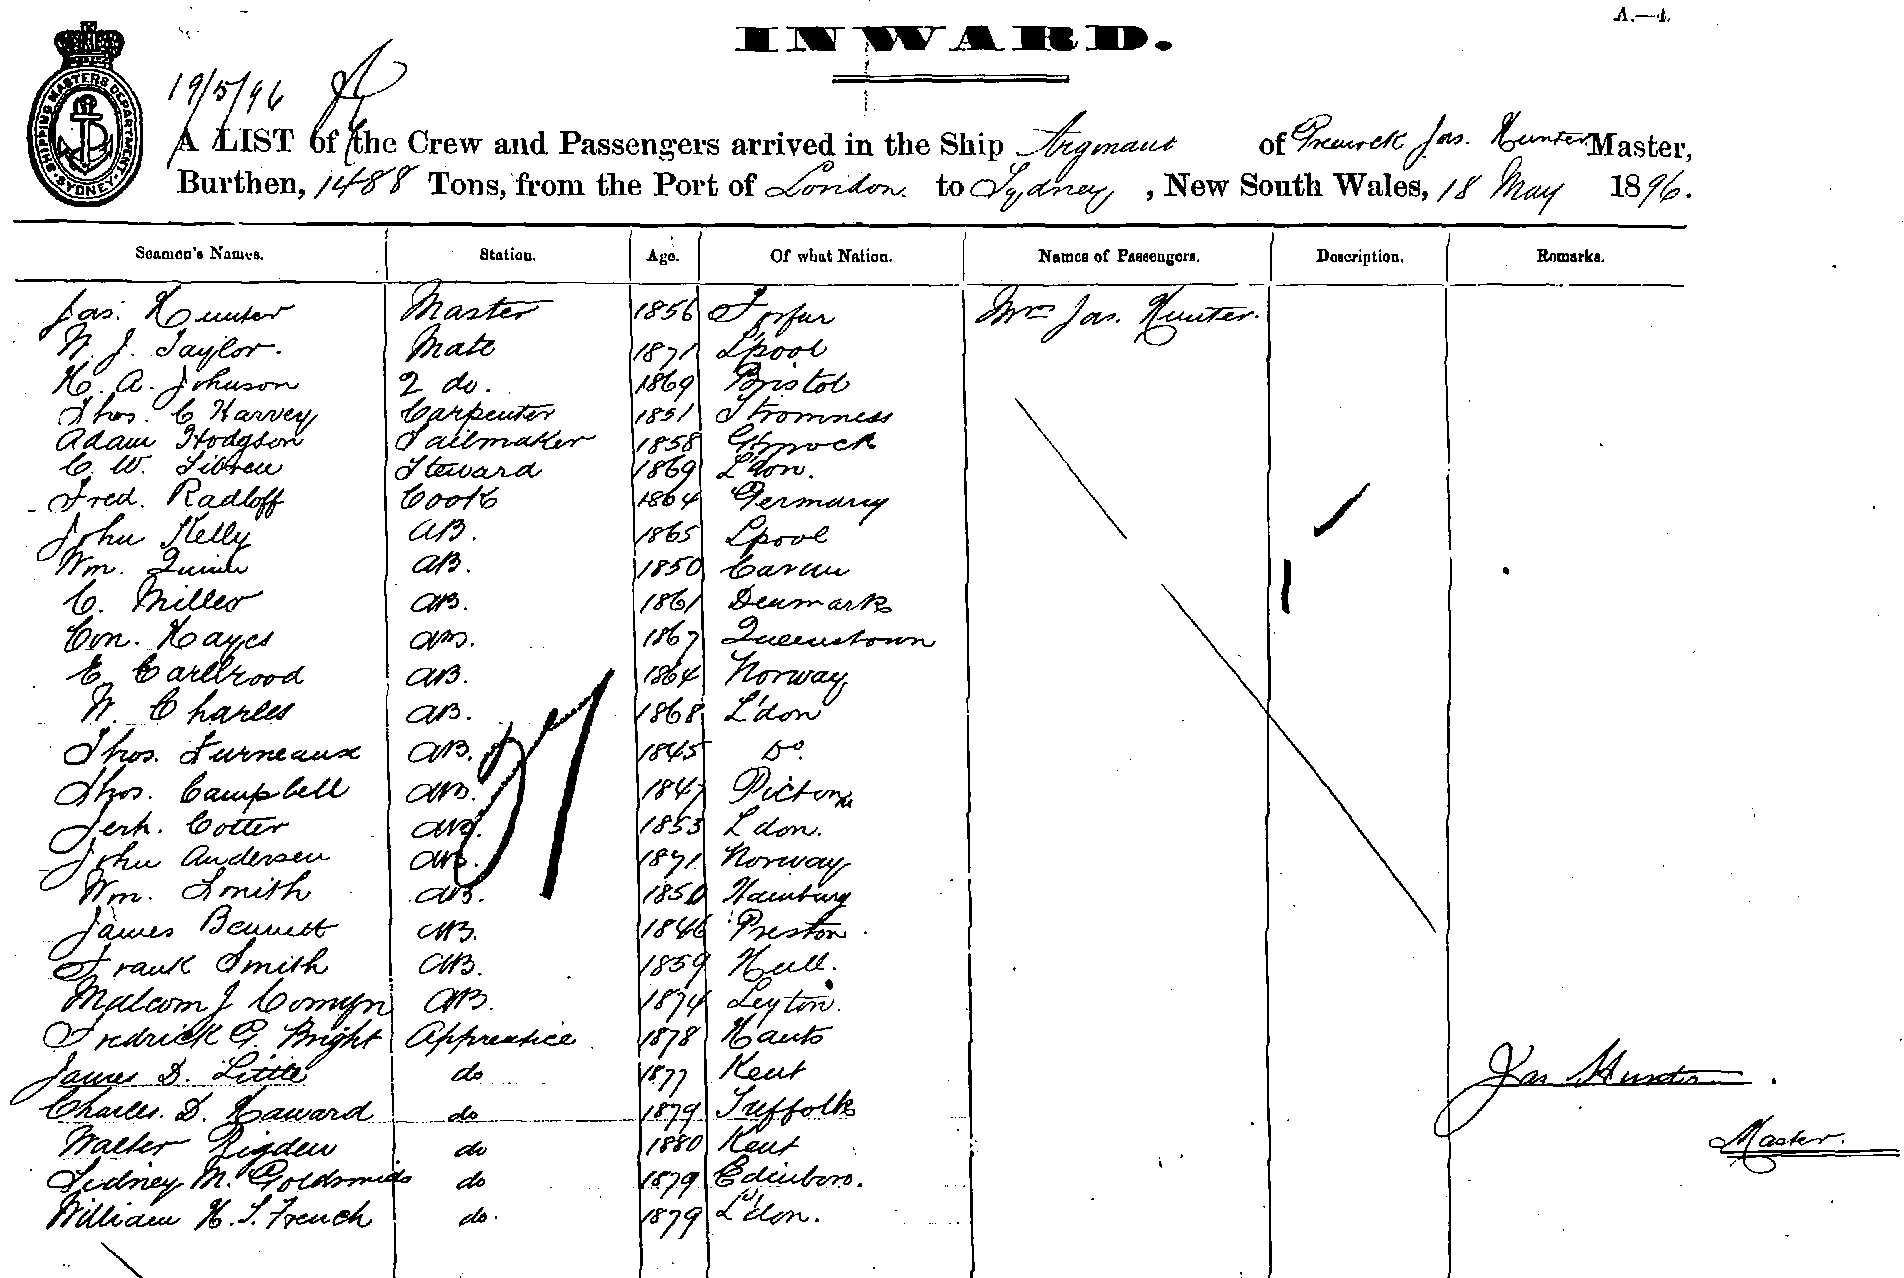 A.—4.
INWARD.
SHIPPING MASTERS DEPARTMENT SYDNEY
19/5/96
A LIST of the Crew and Passengers arrived in the Ship Argonaut of Greenock Jas. Hunter Master,
Burthen, 1488 Tons, from the Port of London to Sydney, New South Wales, 18 May 1896.
Seamen's Names. Station. Age. Of what Nation. Names of Passengers. Description. Remarks.
Jas. Hunter Master 1856 Forfar Mrs Jas. Hunter.
W. J. Taylor. Mate 1871 L'pool
H. A. Johnson 2 do. 1869 Bristol
Thos. C Harvey Carpenter 1851 Stromness
Adam Hodgson Sailmaker 1858 G'nock
C. W. 1869 L'don. Steward
Fred. Radloff Cook 1864 Germany
John Kelly AB. 1865 L'pool
Wm. Quinn AB. 1850 Cavan
C. Miller AB. 1861 Denmark
Con. Hayes AB. 1867 Queenstown
E. AB. 1864 Norway
W. Charles AB. 1868 L'don
Thos. Furneaux AB. 1845 Do.
Thos. Campbell AB. 1847 Picton
Jerh. Cotter AB. 1853 L'don.
John Andersen AB. 1871 Norway
Wm. Smith AB. 1850 Hamburg
James Bennett AB. 1846 Preston
Frank Smith AB. 1859 Hull.
Malcom J Comyn AB. 1874 Leyton.
Fredrick G. Bright Apprentice 1878 Hants
James D. Little do 1877 Kent
Charles. D. Haward do 1879 Suffolk
Walter Rigden do 1880 Kent
Sidney M. Goldsmid do 1879 Edinboro.
William H. S. French do. 1879 L'don.
27
Jas Hunter
Master.